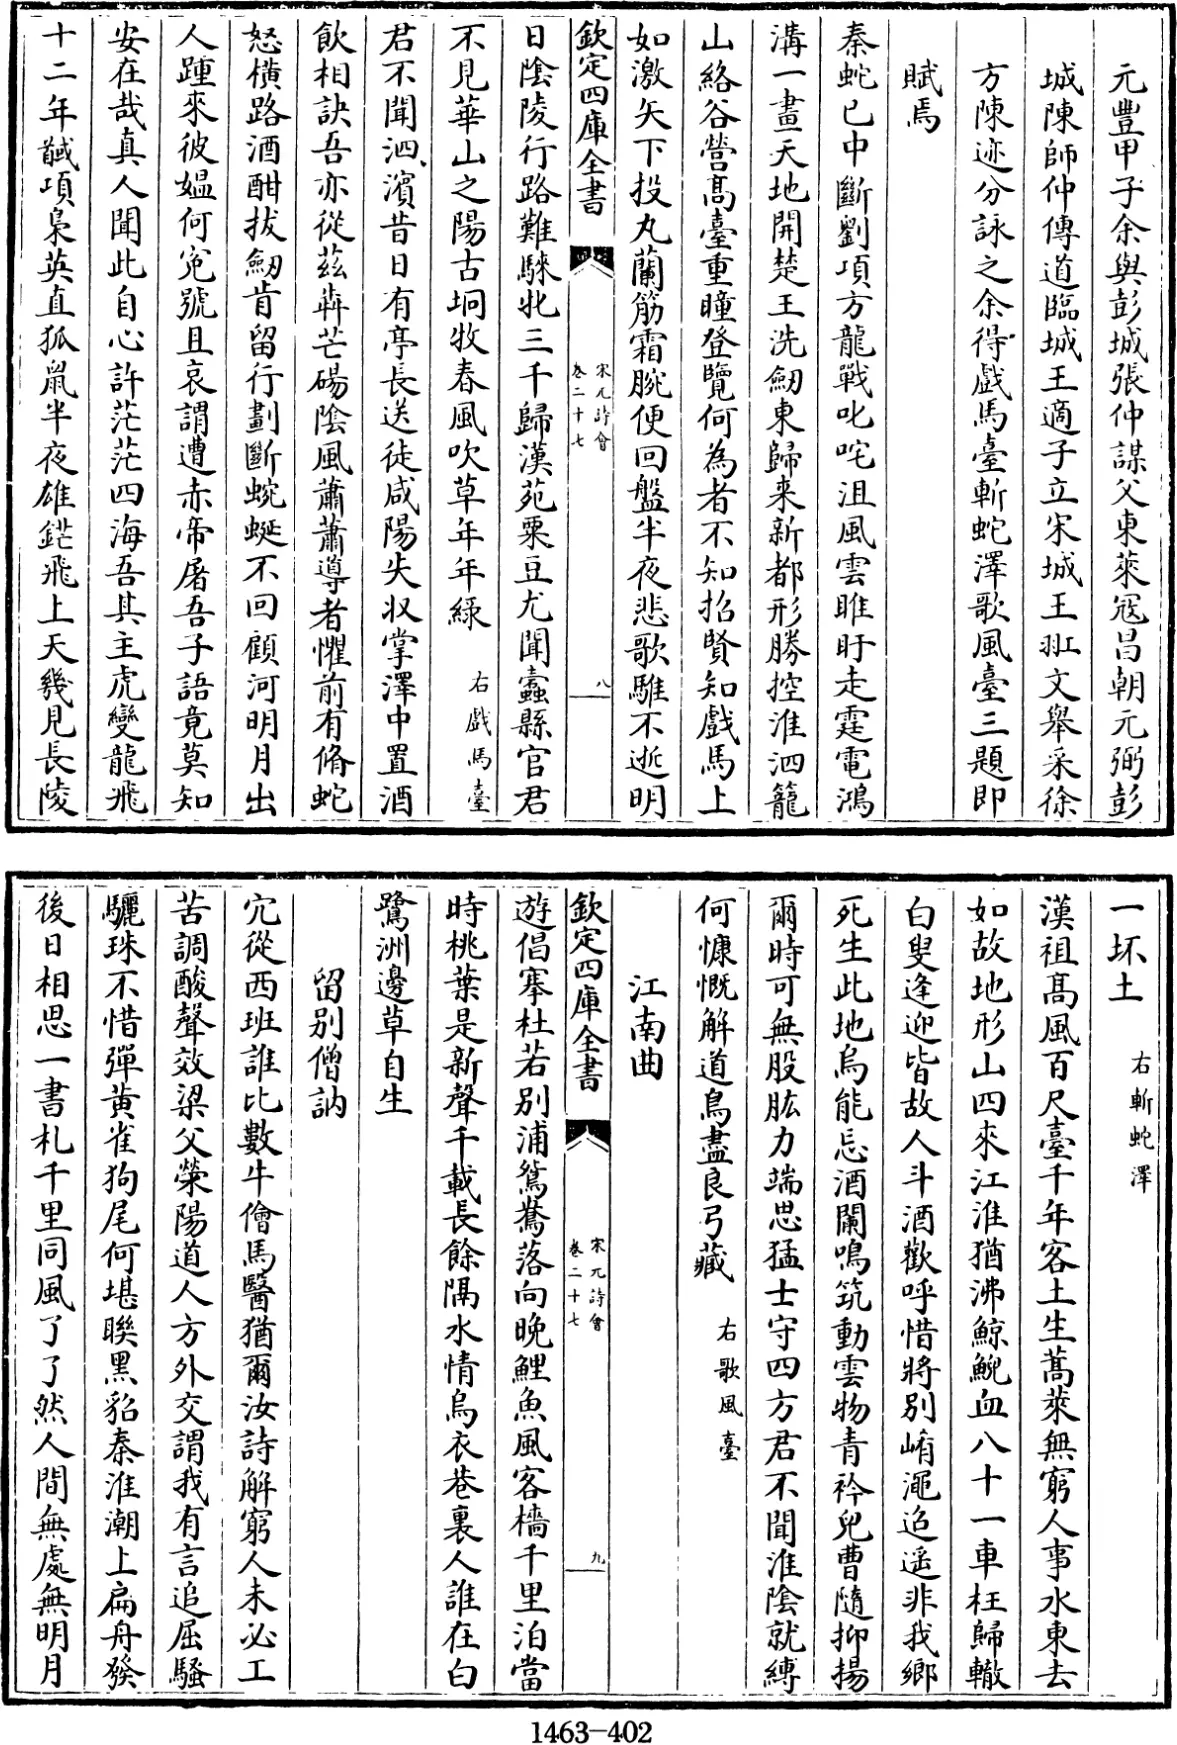 元豐甲子余與彭城張仲謀父東萊宼昌朝元弼彭
城陳師仲傳道臨城王適子立宋城王𢀜文舉采徐
方陳迹分詠之余得戲馬臺斬蛇澤歌風臺三題即
賦焉
秦蛇已中斷劉項方龍戰叱咤沮風雲睢盱走霆電鴻
溝一畫天地開楚王洗劒東歸来新都形勝控淮泗籠
山絡谷營髙臺重瞳登覽何為者不知招賢知戲馬上
如激矢下投丸蘭筋霜腕便回盤半夜悲歌騅不逝明
欽定四庫全書
宋元詩會
卷二十七
八
日陰陵行路難騋牝三千歸漢苑粟豆尤聞蠧縣官君
不見華山之陽古坰牧春風吹草年年緑 右戲馬臺
君不聞泗濱昔日有亭長送徒咸陽失収掌澤中置酒
飲相訣吾亦從兹犇芒碭陰風蕭蕭導者懼前有脩蛇
怒橫路酒酣拔劒肯留行劃斷蜿蜒不回顧河明月出
人踵來彼媪何寃號且哀謂遭赤帝屠吾子語竟莫知
安在哉真人聞此自心許茫茫四海吾其主虎變龍飛
十二年馘項梟英直狐鼠半夜雄鋩飛上天幾見長陵
一坏土 右斬蛇澤
漢祖髙風百尺臺千年客土生蒿萊無窮人事水東去
如故地形山四來江淮猶沸鯨鯢血八十一車枉歸轍
白叟逢迎皆故人斗酒歡呼惜將別崤澠迢遥非我鄉
死生此地烏能忘酒闌鳴筑動雲物青衿兒曹隨抑揚
爾時可無股肱力端思猛士守四方君不聞淮陰就縛
何慷慨解道鳥盡良弓藏 右歌風臺
江南曲
遊倡搴杜若別浦鴛鴦落向晚鯉魚風客檣千里泊當
欽定四庫全書
宋元詩會
卷二十七
九
時桃葉是新聲千載長餘隔水情烏衣巷裏人誰在白
鷺洲邊草自生
留別僧訥
宂從西班誰比數牛儈馬醫猶爾汝詩解窮人未必工
苦調酸聲效梁父榮陽道人方外交謂我有言追屈騷
驪珠不惜彈黄雀狗尾何堪聨黑貂秦淮潮上扁舟發
後日相思一書札千里同風了了然人間無處無明月
1463-402